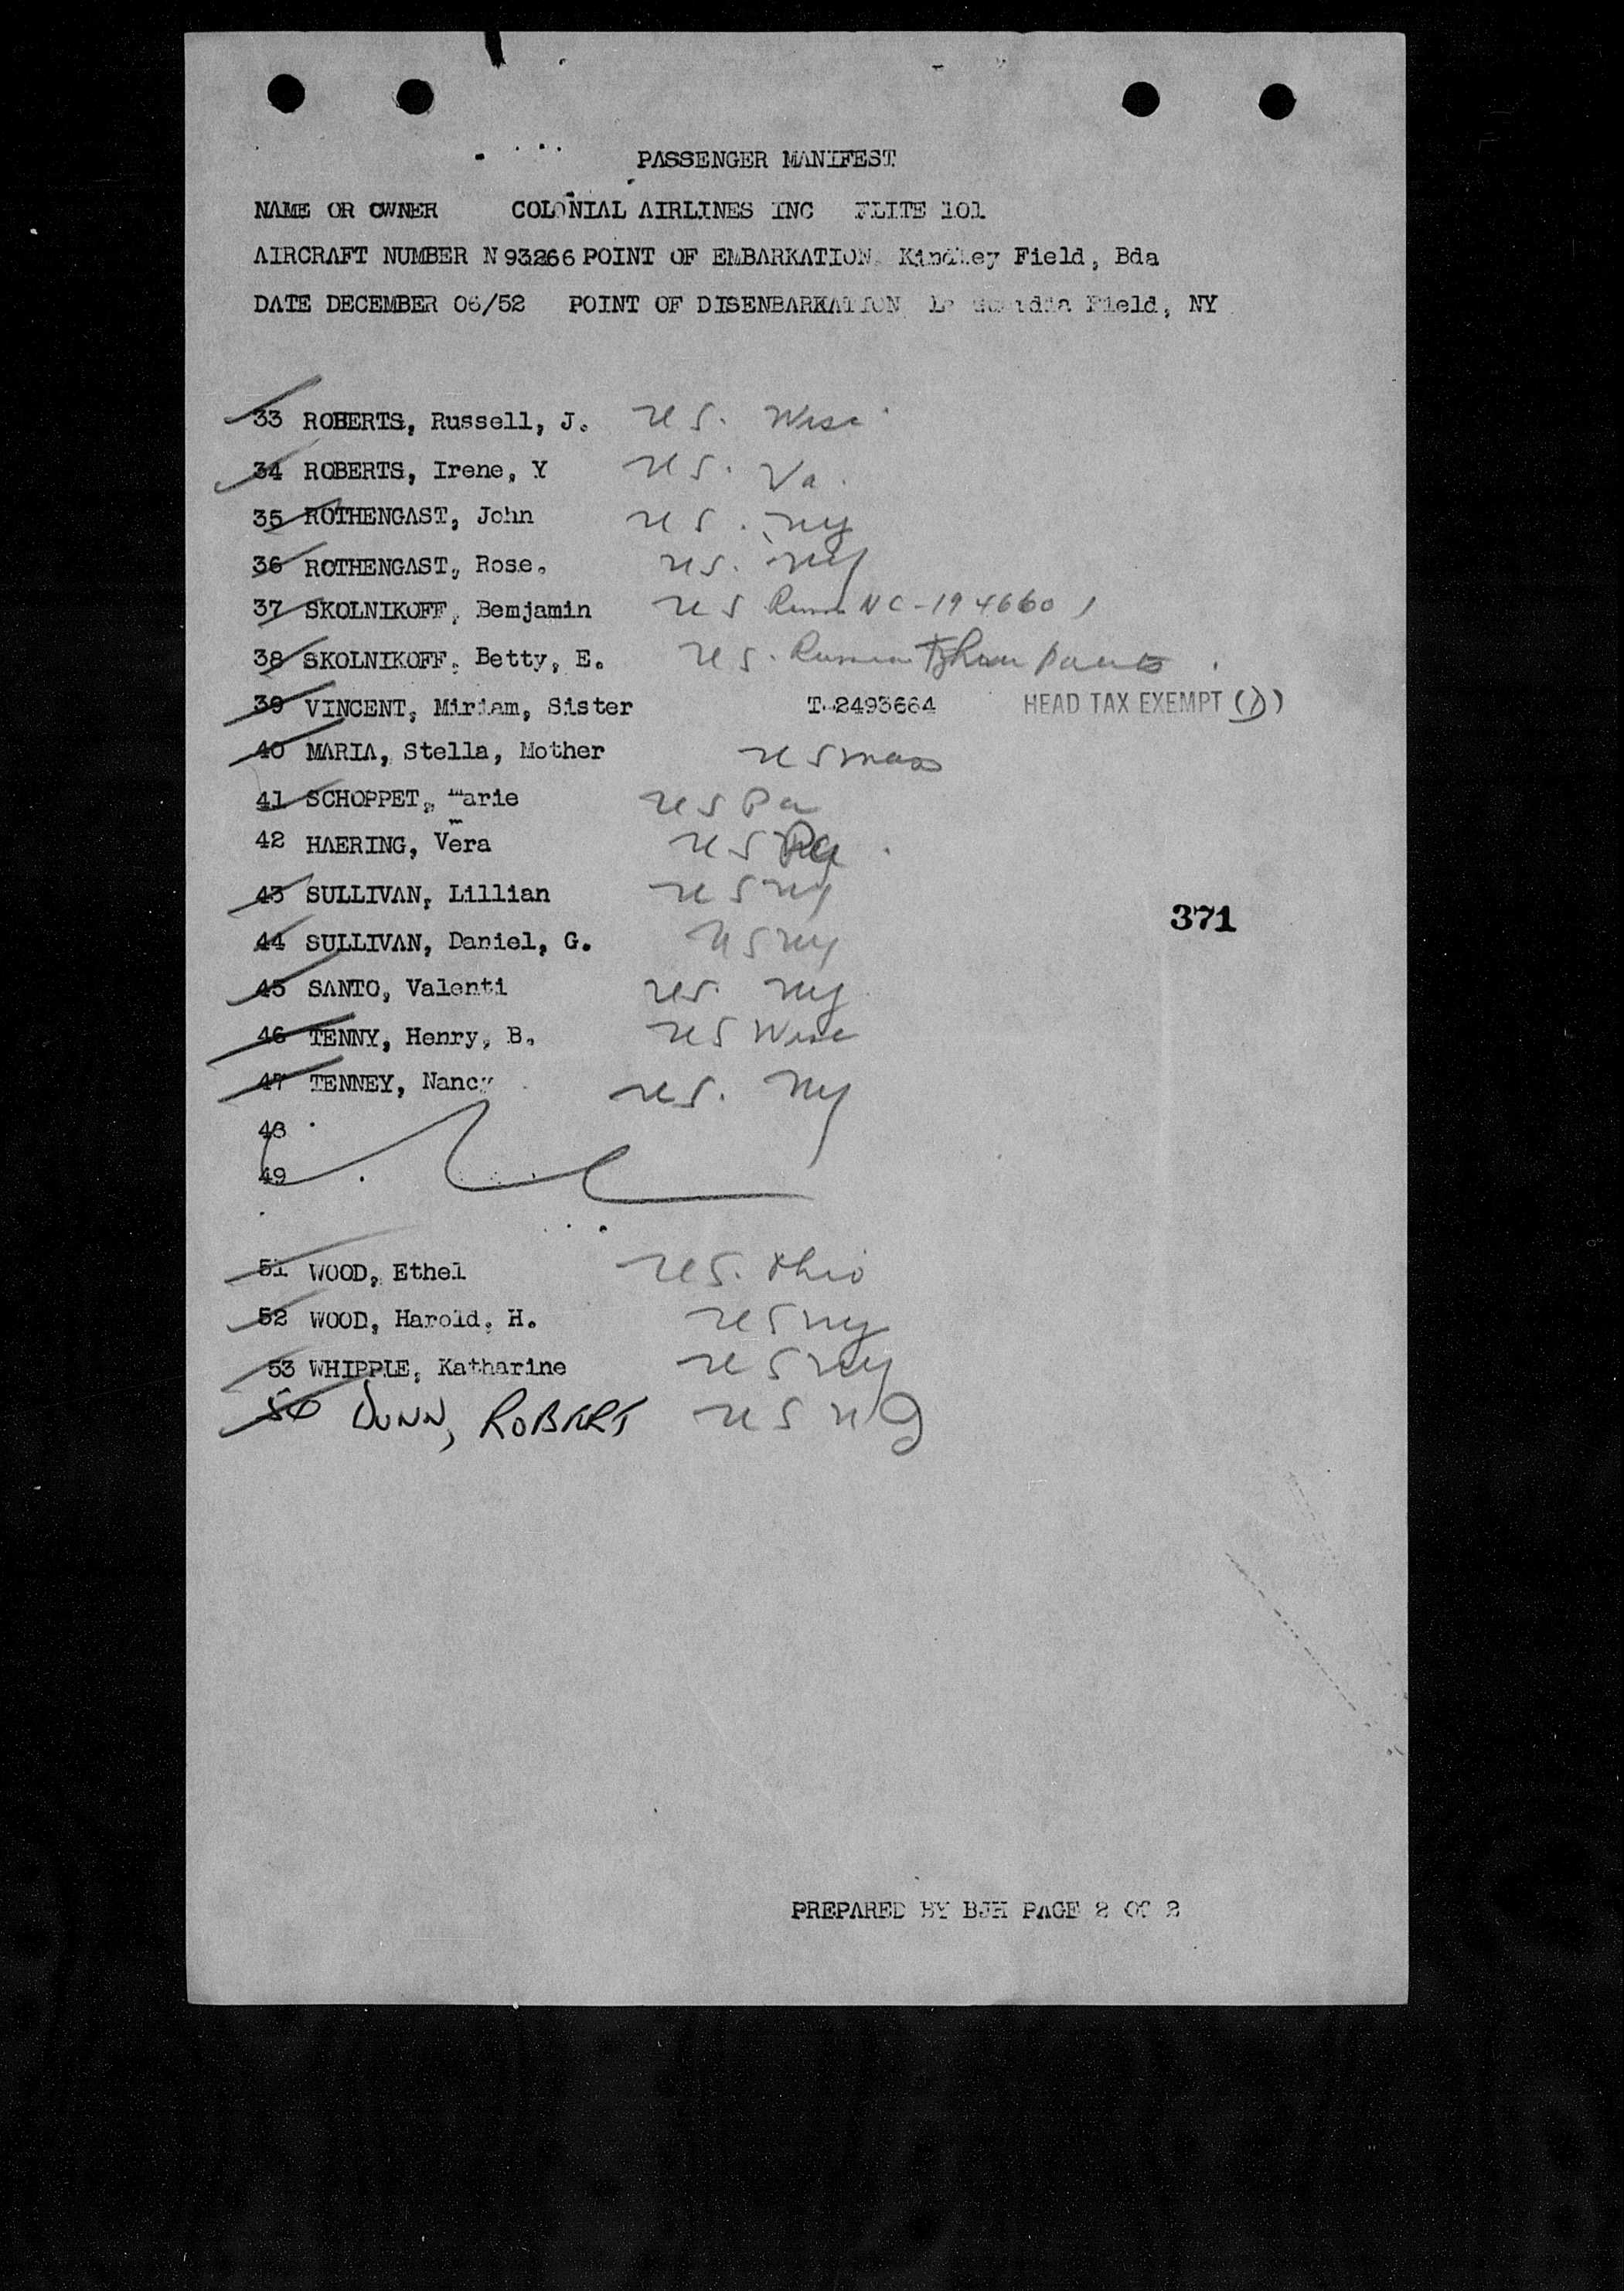 PASSENGER MANIFEST
NAME OR OWNER COLONIAL AIRLINES INC FLITE 101
AIRCRAFT NUMBER N 93266 POINT OF EMBARKATION Kindley Field, Bda
DATE DECEMBER 06/52 POINT OF DISENBARKATION Field, NY
33 ROBERTS, Russell, J. US. Wisc
34 ROBERTS, Irene, Y US. Va.
35 ROTHENGAST, John US. NY
36 ROTHENGAST, Rose. US. NY
37 SKOLNIKOFF, Bemjamin US NC-194660
38 SKOLNIKOFF, Betty, E. US.
39 VINCENT, Miriam, Sister T-2493664 HEAD TAX EXEMPT
40 MARIA, Stella, Mother US Mass
41 SCHOPPET, Marie US Pa
42 HAERING, Vera US Pa.
43 SULLIVAN, Lillian US NY
44 SULLIVAN, Daniel, G. US NY
371
45 SANTO, Valenti US. NY
46 TENNY, Henry, B. US Wisc
47 TENNEY, Nancy US. NY
48
49
51 WOOD, Ethel US. Ohio
52 WOOD, Harold, H. US NY
53 WHIPPLE, Katharine US NY
50 DUNN, ROBERT US NJ
PREPARED BY BJH PAGE 2 OF 2